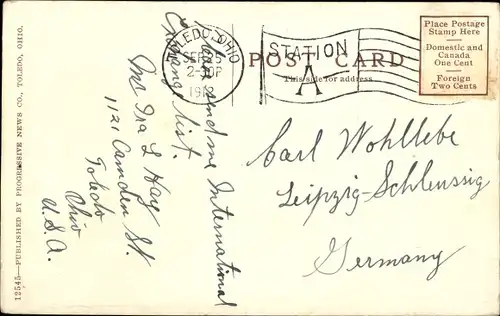 12545—PUBLISHED BY PROGRESSIVE NEWS CO., TOLEDO, OHIO.
TOLEDO, OHIO
SEP
2-
P
191
STATION
A
POST CARD
This side for address
Place Postage
Stamp Here
Domestic and
Canada
One Cent
Foreign
Two Cents
send me International
Exchange list.
Mr Ira L Hay
1121 Camden St.
Toledo
Ohio
U.S.A.
Carl Wohllebe
Leipzig-Schleussig
Germany